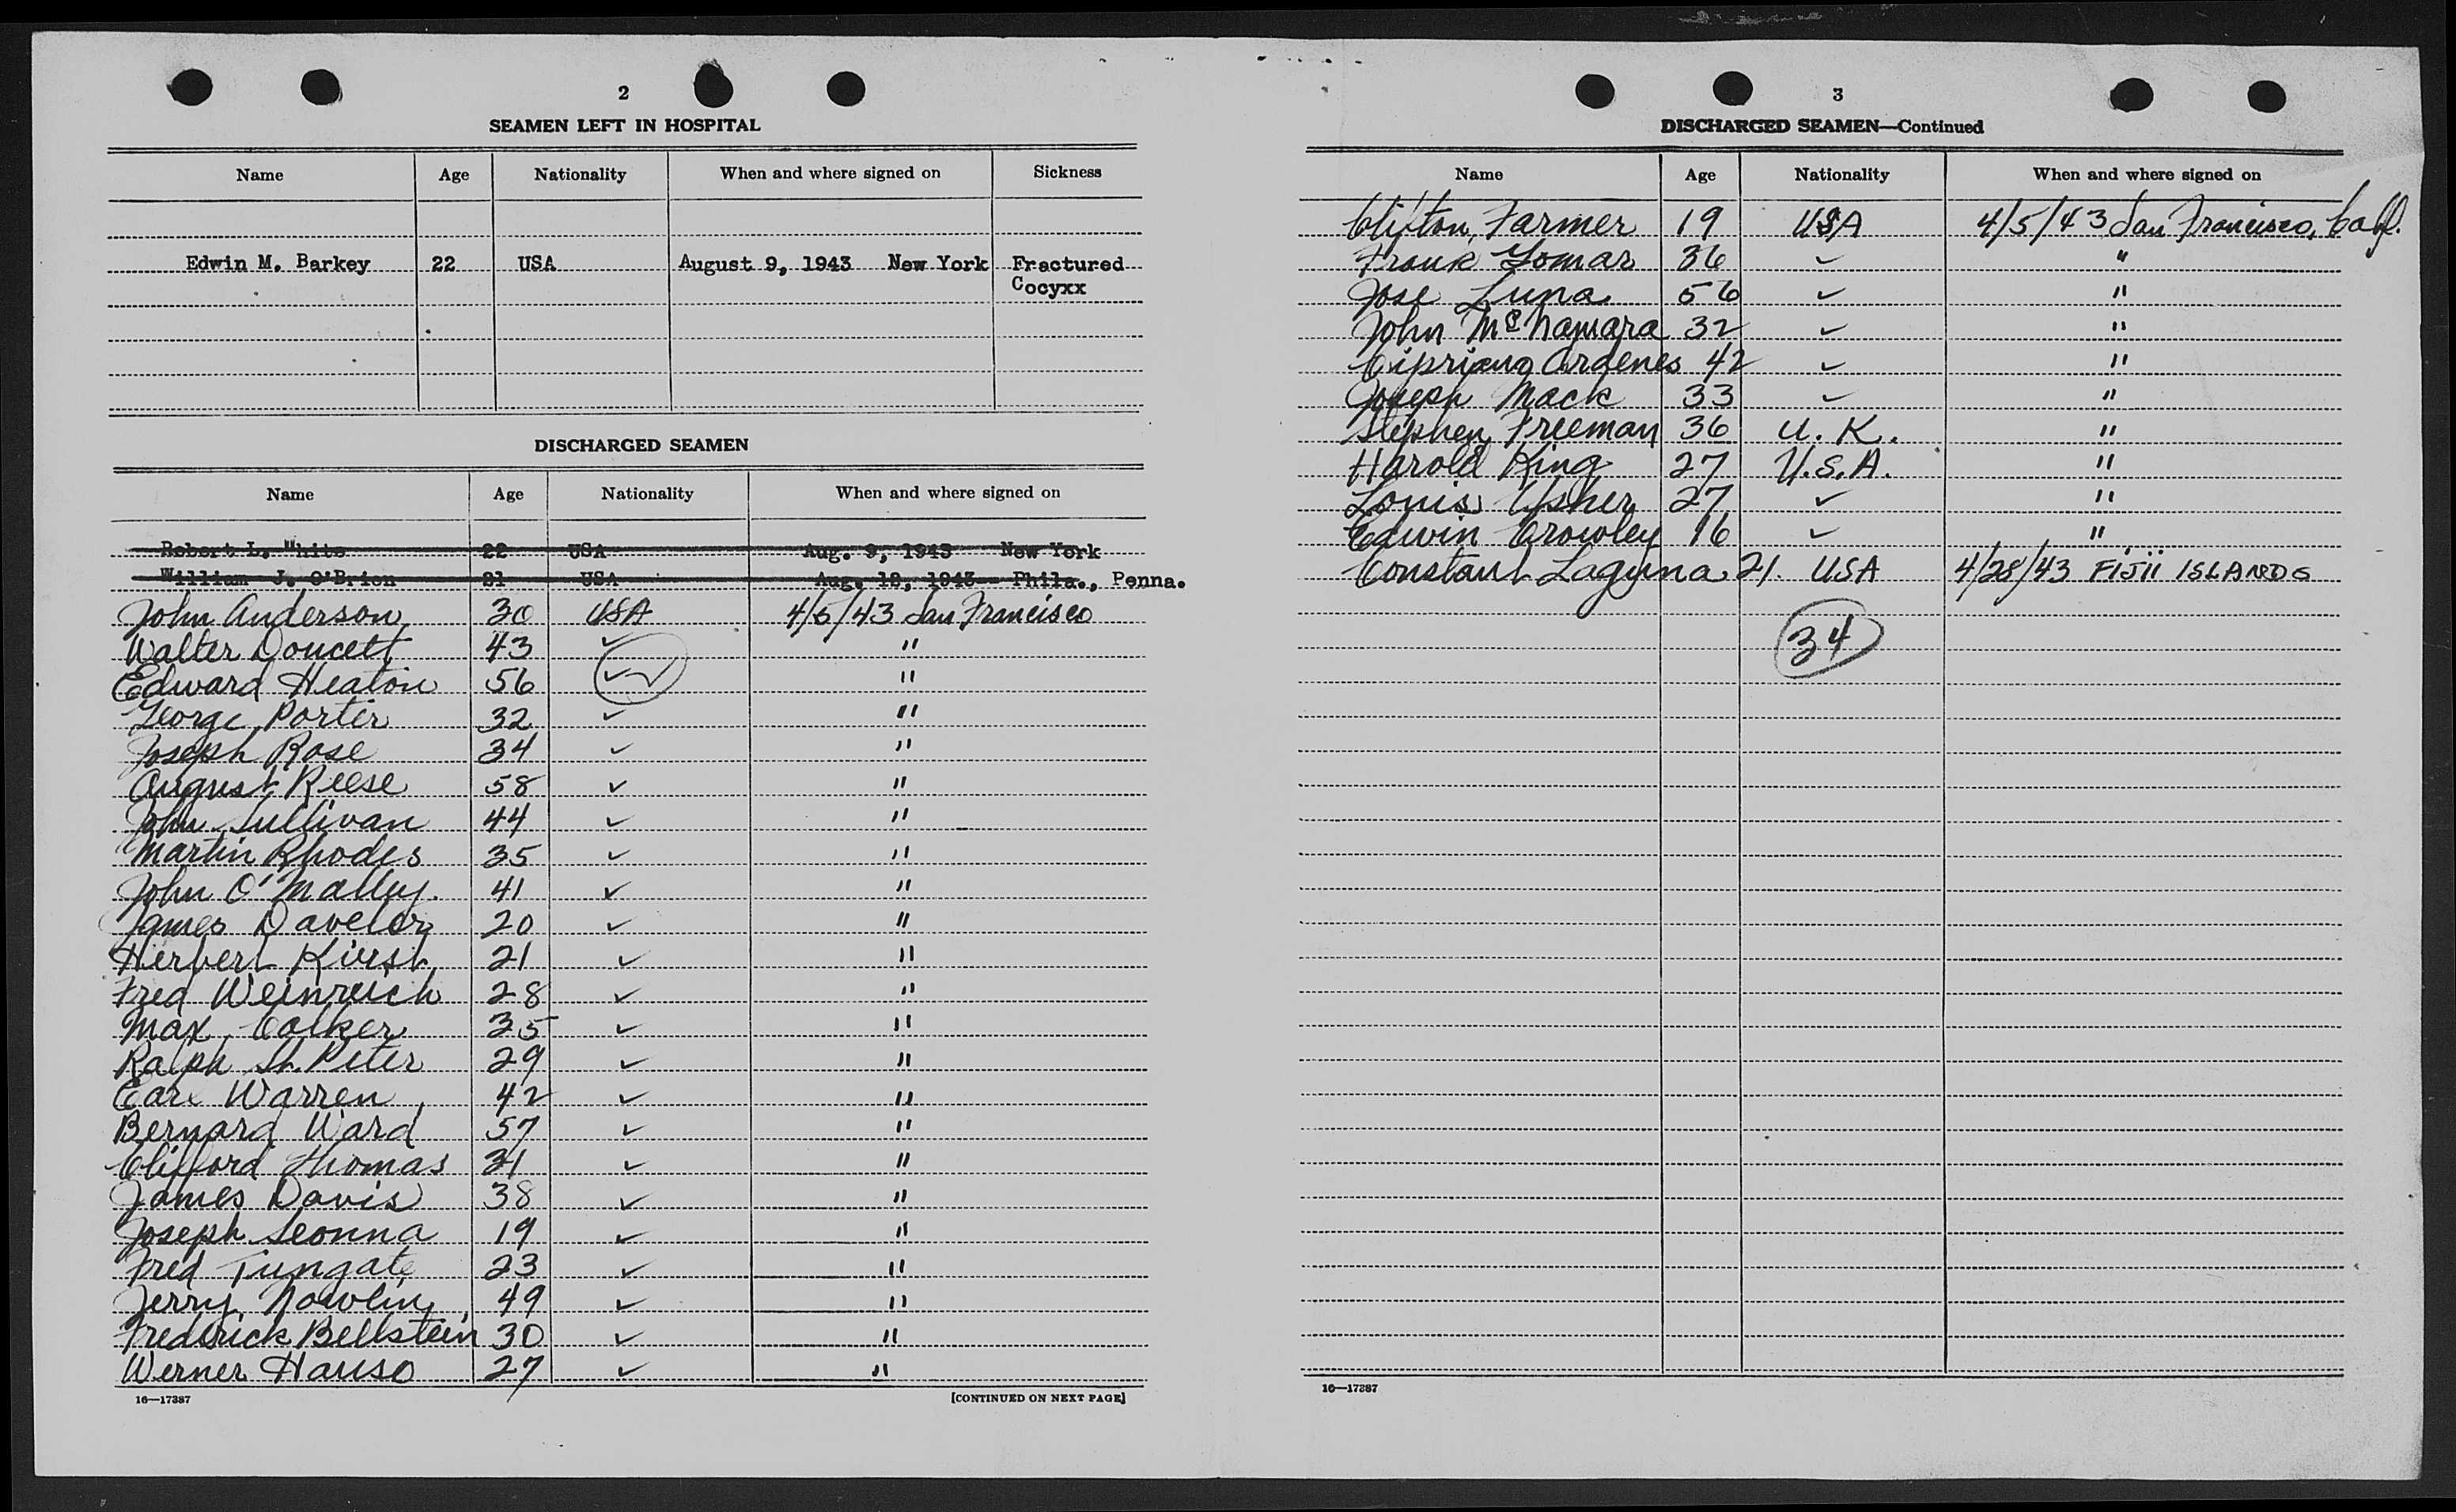 2
SEAMEN LEFT IN HOSPITAL
Name Age Nationality When and where signed on Sickness
Edwin M. Barkey 22 USA August 9, 1943 New York Fractured
Cocyxx
DISCHARGED SEAMEN
Name Age Nationality When and where signed on
Robert L. White 22 USA Aug. 9, 1943 New York
William J. O'Brien 21 USA Aug. 12, 1943 Phila., Penna.
John Anderson 30 USA 4/5/43 San Francisco
Walter Doucett 43 ✓ "
Edward Heaton 56 ✓✓ "
George Porter 32 ✓ "
Joseph Rose 34 ✓ "
August Reese 58 ✓ "
John Sullivan 44 ✓ "
Martin Rhodes 35 ✓ "
John O'Malley 41 ✓ "
James 20 ✓ "
Herbert 21 ✓ "
Fred Weinreich 28 ✓ "
Max Calker 35 ✓ "
Ralph St. Peter 29 ✓ "
Earl Warren 42 ✓ "
Bernard Ward 57 ✓ "
Clifford Thomas 31 ✓ "
James Davis 38 ✓ "
Joseph Leonna 19 ✓ "
Fred Tungate 23 ✓ "
Jerry Nowlin 49 ✓ "
Frederick Bellstein 30 ✓ "
Werner Hauso 27 ✓ "
16—17387 [CONTINUED ON NEXT PAGE]
3
DISCHARGED SEAMEN—Continued
Name Age Nationality When and where signed on
Clifton Farmer 19 USA 4/5/43 San Francisco, Calif.
Frank 36 ✓ "
Jose Luna 56 ✓ "
John McNamara 32 ✓ "
Cipriano Ardenes 42 ✓ "
Joseph Mack 33 ✓ "
Stephen Freeman 36 U.K. "
Harold King 27 U.S.A. "
Louis Usher 27 ✓ "
Edwin Crowley 16 ✓ "
Constant Laguna 21. USA 4/28/43 FIJII ISLANDS
34
16—17387